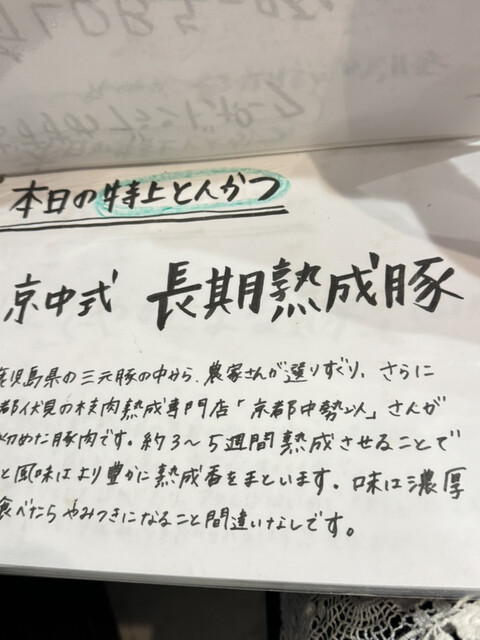 本日の特上とんかつ
京中式 長期熟成豚
児島県の三元豚の中から、農家さんが選りすぐり、さらに
都伏見の枝肉熟成専門店「京都中勢以」さんが
めた豚肉です。約3〜5週間熟成させることで
と風味はより豊かに熟成香をまといます。味は濃厚
食べたらやみつきになること間違いなしです。